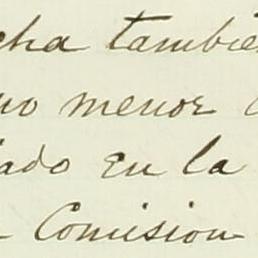 cha tambié
no menor
ado en la
Comision